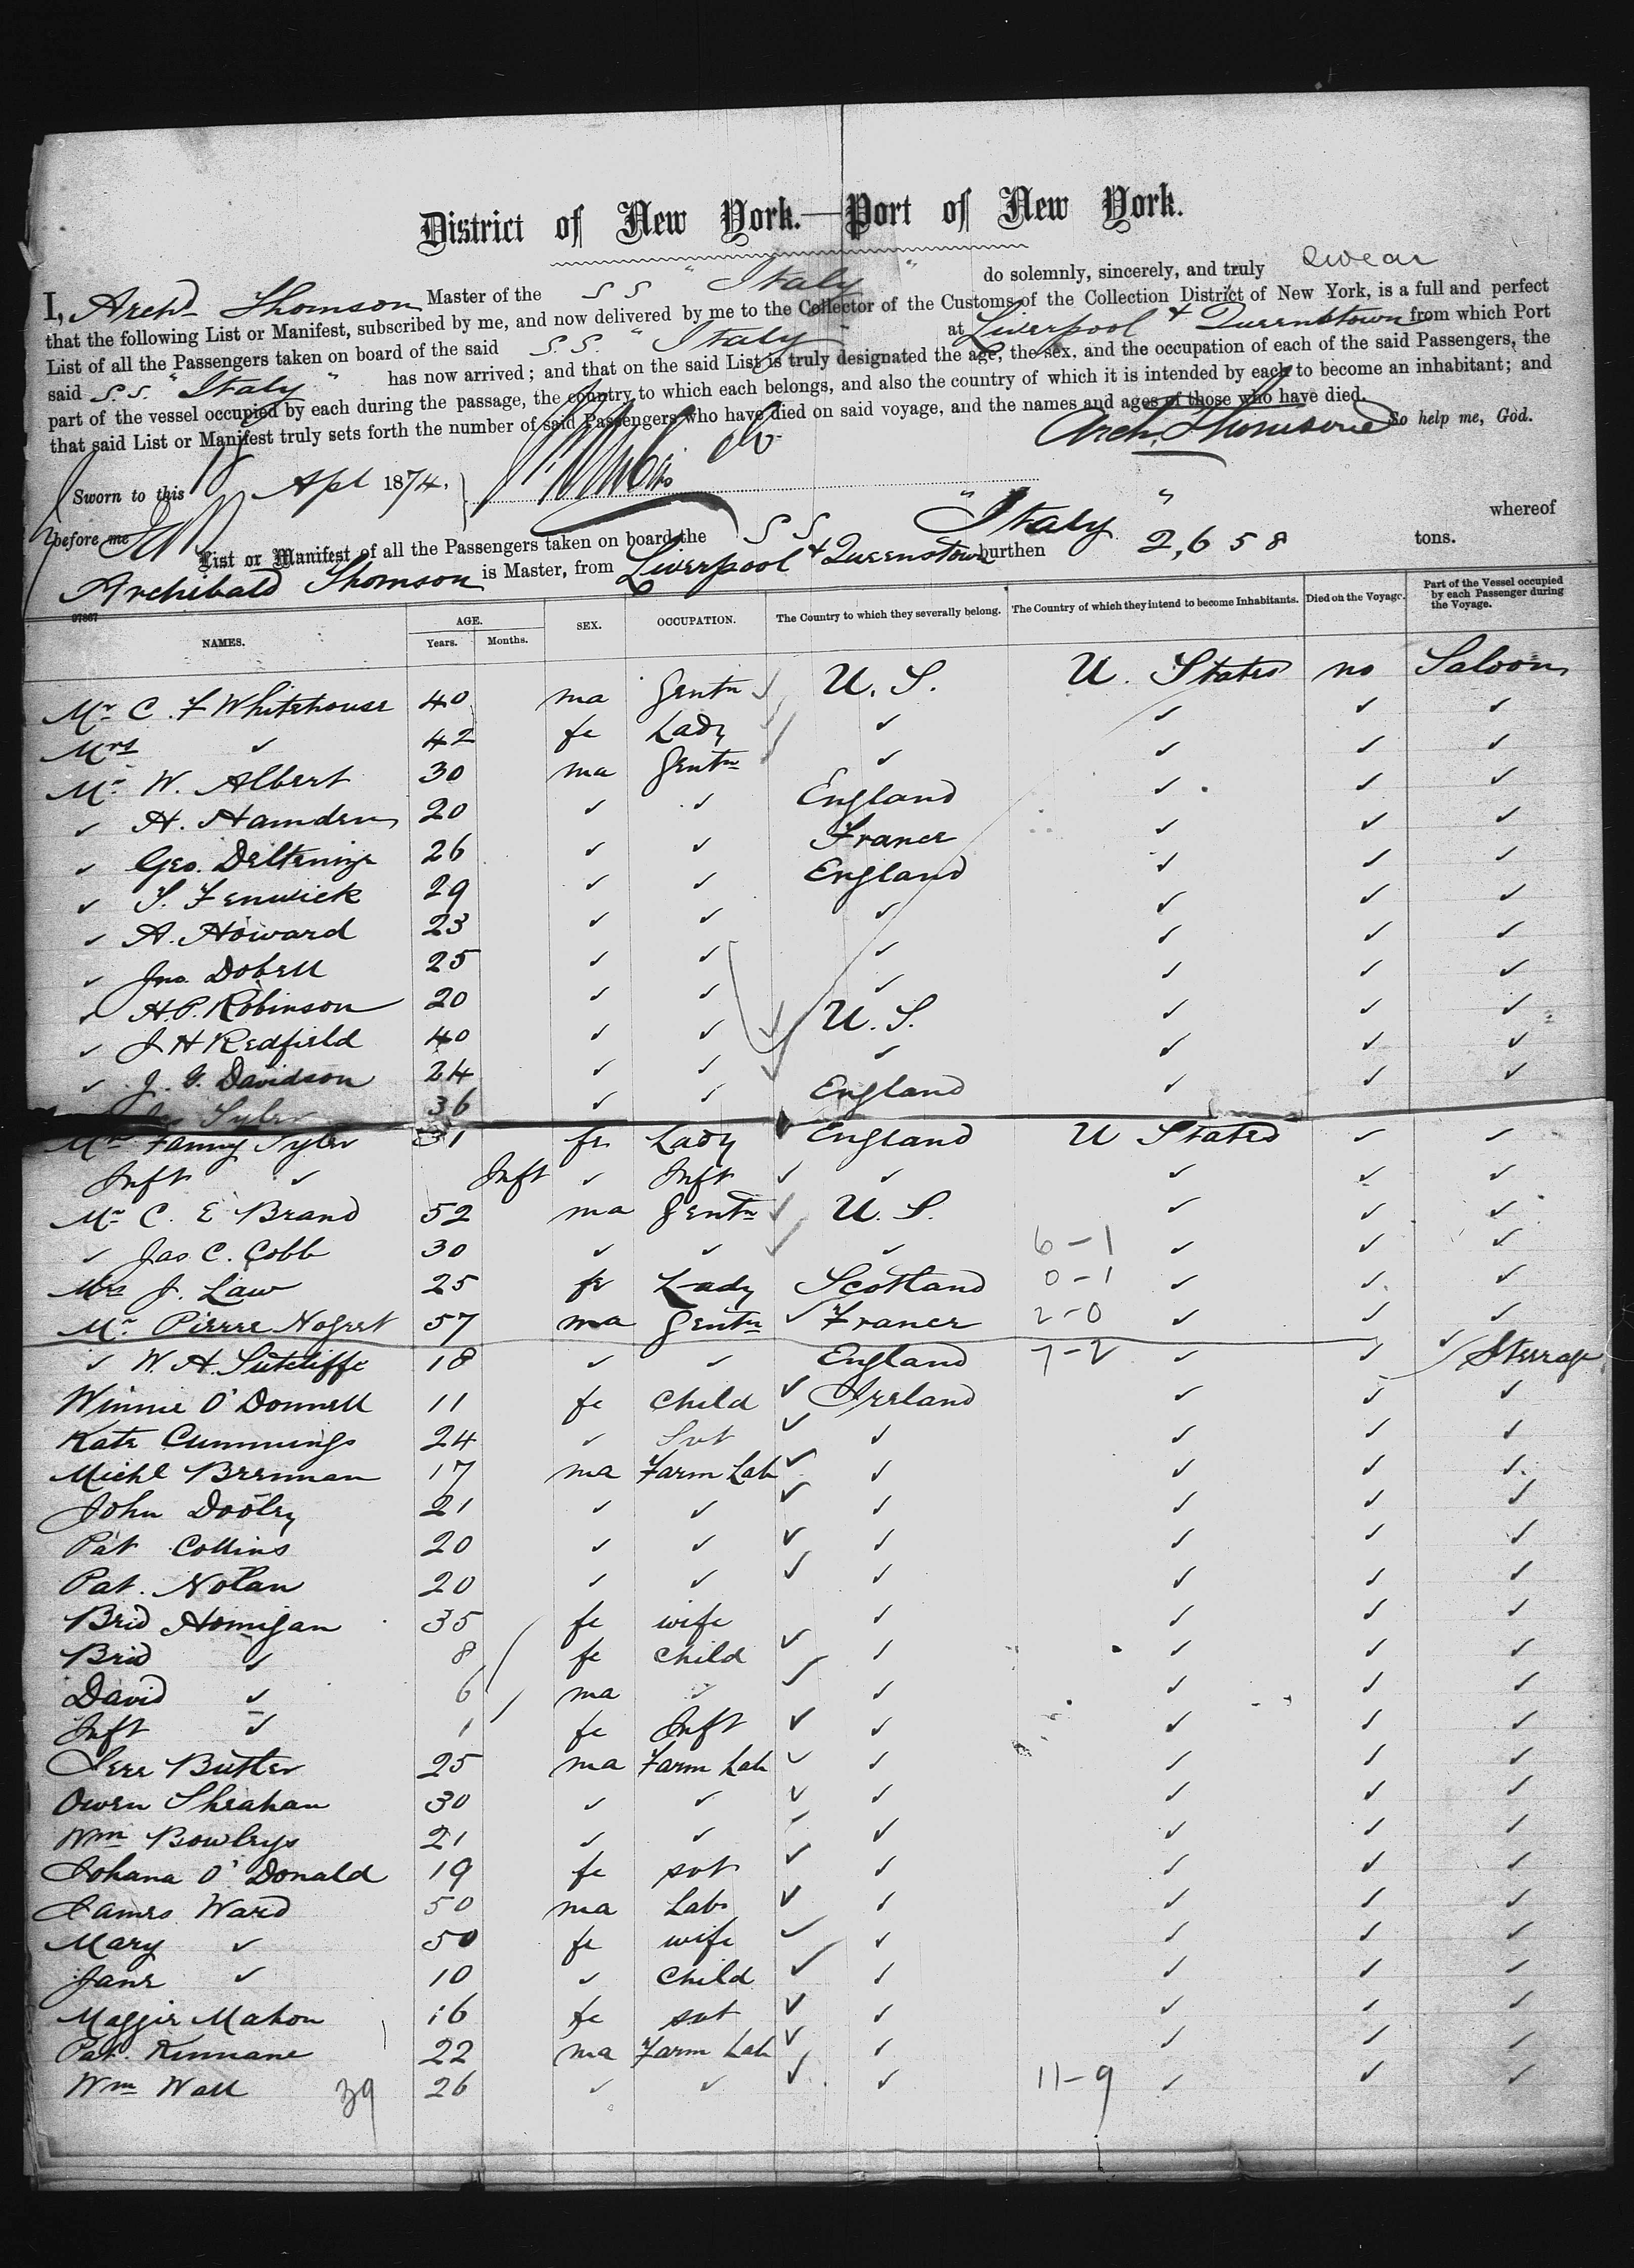 District of New York.—Port of New York.
I, Archd Thomson Master of the S S "Italy" do solemnly, sincerely, and truly swear
that the following List or Manifest, subscribed by me, and now delivered by me to the Collector of the Customs of the Collection District of New York, is a full and perfect
List of all the Passengers taken on board of the said S.S. "Italy" at Liverpool & Queenstown from which Port
said S.S. "Italy" has now arrived; and that on the said List is truly designated the age, the sex, and the occupation of each of the said Passengers, the
part of the vessel occupied by each during the passage, the country to which each belongs, and also the country of which it is intended by each to become an inhabitant; and
that said List or Manifest truly sets forth the number of said Passengers who have died on said voyage, and the names and ages of those who have died.
Arch. Thomson So help me, God.
Sworn to this Apl 1874.
before me
List or Manifest of all the Passengers taken on board the S S "Italy" whereof
Archibald Thomson is Master, from Liverpool & Queenstown burthen 2,658 tons.
97867
NAMES. AGE. Years. Months. SEX. OCCUPATION. The Country to which they severally belong. The Country of which they intend to become Inhabitants. Died on the Voyage. Part of the Vessel occupied by each Passenger during the Voyage.
Mr C. F Whitehouse 40 ma Gentn ✓ U. S. U. States no Saloon
Mrs ✓ 42 fe Lady ✓ ✓ ✓ ✓ ✓
Mr W. Albert 30 ma Gentn ✓ ✓ ✓ ✓
✓ H. Hamden 20 ✓ ✓ England ✓ ✓ ✓
✓ Geo. 26 ✓ ✓ France ✓ ✓ ✓
✓ S. Fenwick 29 ✓ ✓ England ✓ ✓ ✓
✓ A. Howard 23 ✓ ✓ ✓ ✓ ✓ ✓
✓ Jno. Dobell 25 ✓ ✓ ✓ ✓ ✓ ✓
✓ H.P. Robinson 20 ✓ ✓ ✓ ✓ ✓ ✓
✓ J H Redfield 40 ✓ ✓ U. S. ✓ ✓ ✓
✓ J. G. Davidson 24 ✓ ✓ ✓ ✓ ✓ ✓
Tyler 36 ✓ ✓ England ✓ ✓ ✓
Mrs Fanny Tyler 31 fe Lady England U States ✓ ✓
Inft ✓ Inft ✓ Inft ✓ ✓ ✓ ✓ ✓
Mr C. E Brand 52 ma Gentn ✓ U. S. ✓ ✓ ✓
✓ Jas C. Cobb 30 ✓ ✓ ✓ ✓ 6-1 ✓ ✓ ✓
Mrs J. Law 25 fe Lady Scotland 0-1 ✓ ✓ ✓
Mr Pierre Nogret 57 ma Gentn ✓ France 2-0 ✓ ✓ ✓
✓ W. H. Sutcliffe 18 ✓ ✓ England 7-2 ✓ ✓ ✓ Steerage
Winnie O'Donnell 11 fe child ✓ Ireland ✓ ✓ ✓
Kate Cummings 24 ✓ Svt ✓ ✓ ✓ ✓ ✓
Michl Brennan 17 ma Farm Lab ✓ ✓ ✓ ✓ ✓
John Dooley 21 ✓ ✓ ✓ ✓ ✓ ✓ ✓
Pat Collins 20 ✓ ✓ ✓ ✓ ✓ ✓ ✓
Pat. Nolan 20 ✓ ✓ ✓ ✓ ✓ ✓ ✓
Brid Homigan 35 fe wife ✓ ✓ ✓ ✓
Brid ✓ 8 fe child ✓ ✓ ✓ ✓ ✓
David ✓ 6 ma ✓ ✓ ✓ ✓ ✓ ✓
Inft ✓ 1 fe Inft ✓ ✓ ✓ ✓ ✓
Jere Butler 25 ma Farm Lab ✓ ✓ ✓ ✓ ✓
Owen Sheahan 30 ✓ ✓ ✓ ✓ ✓ ✓ ✓
Wm Bowleys 21 ✓ ✓ ✓ ✓ ✓ ✓ ✓
Johana O'Donald 19 fe svt ✓ ✓ ✓ ✓ ✓
James Ward 50 ma Labr ✓ ✓ ✓ ✓ ✓
Mary ✓ 50 fe wife ✓ ✓ ✓ ✓ ✓
Jane ✓ 10 ✓ child ✓ ✓ ✓ ✓ ✓
Maggie Mahon 16 fe svt ✓ ✓ ✓ ✓ ✓
Pat. Kinnane 22 ma Farm Lab ✓ ✓ ✓ ✓ ✓
Wm Wall 39 26 ✓ ✓ ✓ ✓ 11-9 ✓ ✓ ✓